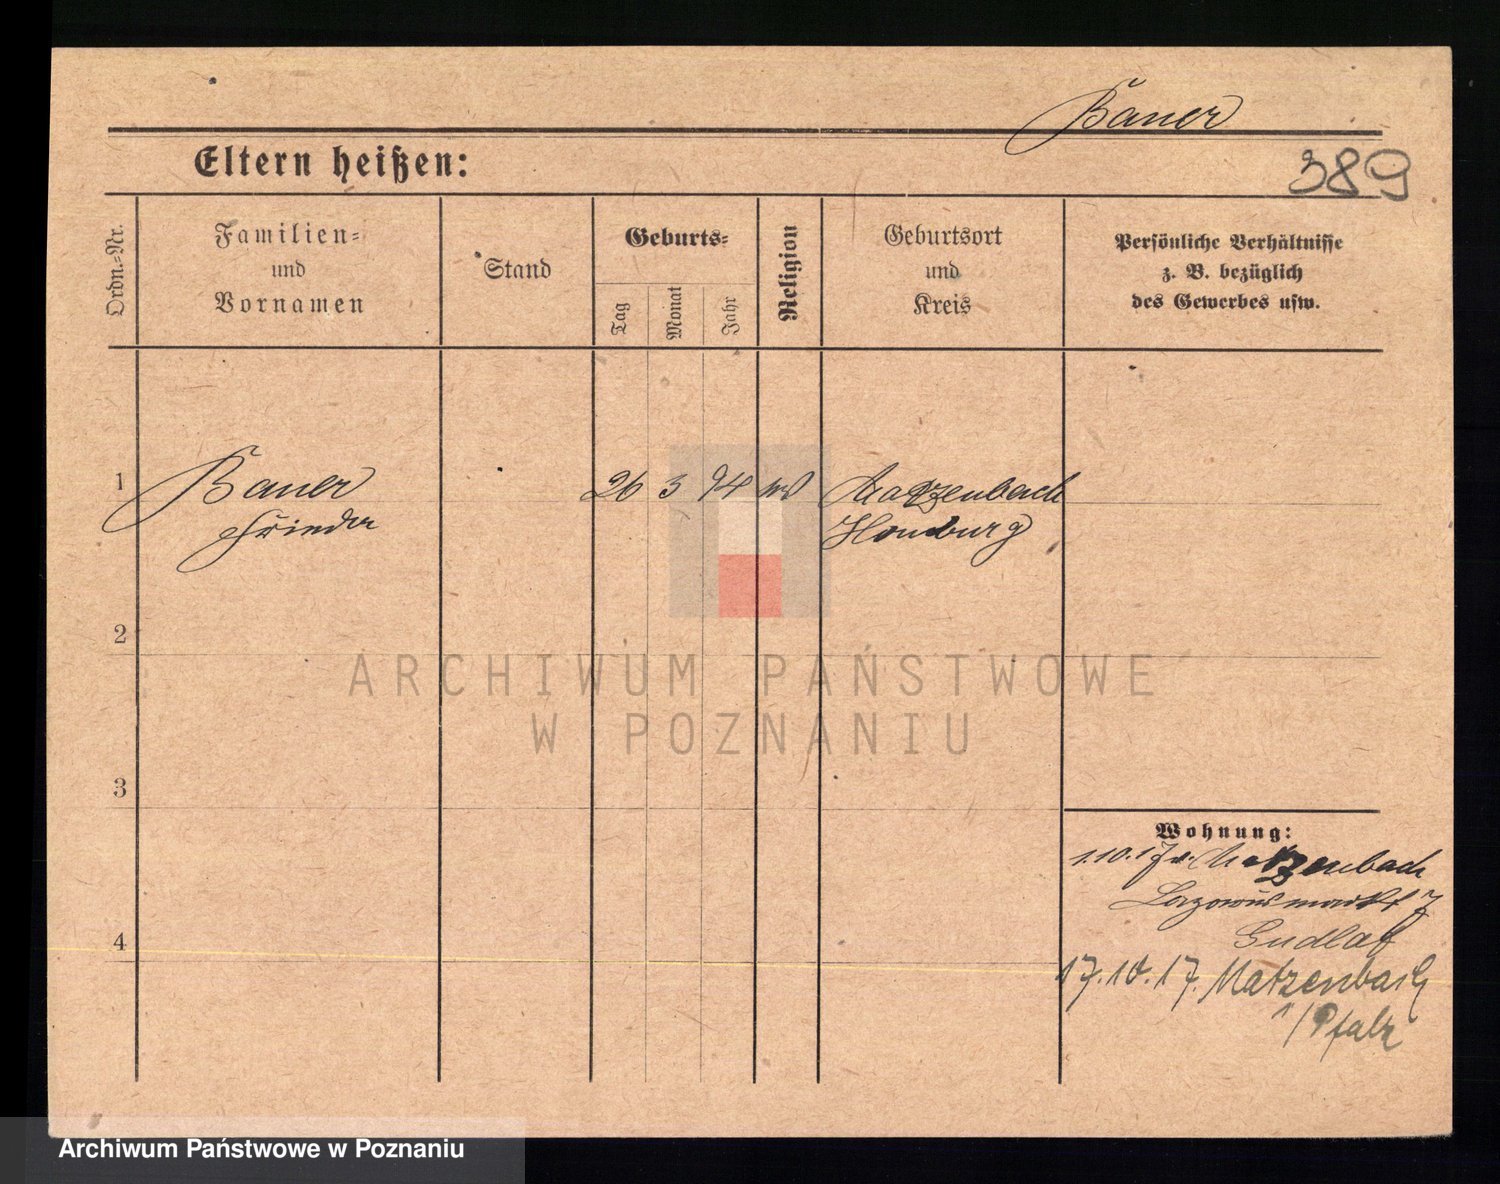 Bauer
389
Eltern heißen:
Ordn.-Nr.
Familien-
und
Vornamen
Stand
Geburts-
Tag
Monat
Jahr
Religion
Geburtsort
und
Kreis
Persönliche Verhältnisse
z. B. bezüglich
des Gewerbes usw.
1
Bauer
26 3 94
Matzenbach
Homburg
2
ARCHIWUM PAŃSTWOWE
W POZNANIU
3
Wohnung:
1.10.17 v. Matzenbach
4
17.10.17. Matzenbach
i/Pfalz
Archiwum Państwowe w Poznaniu